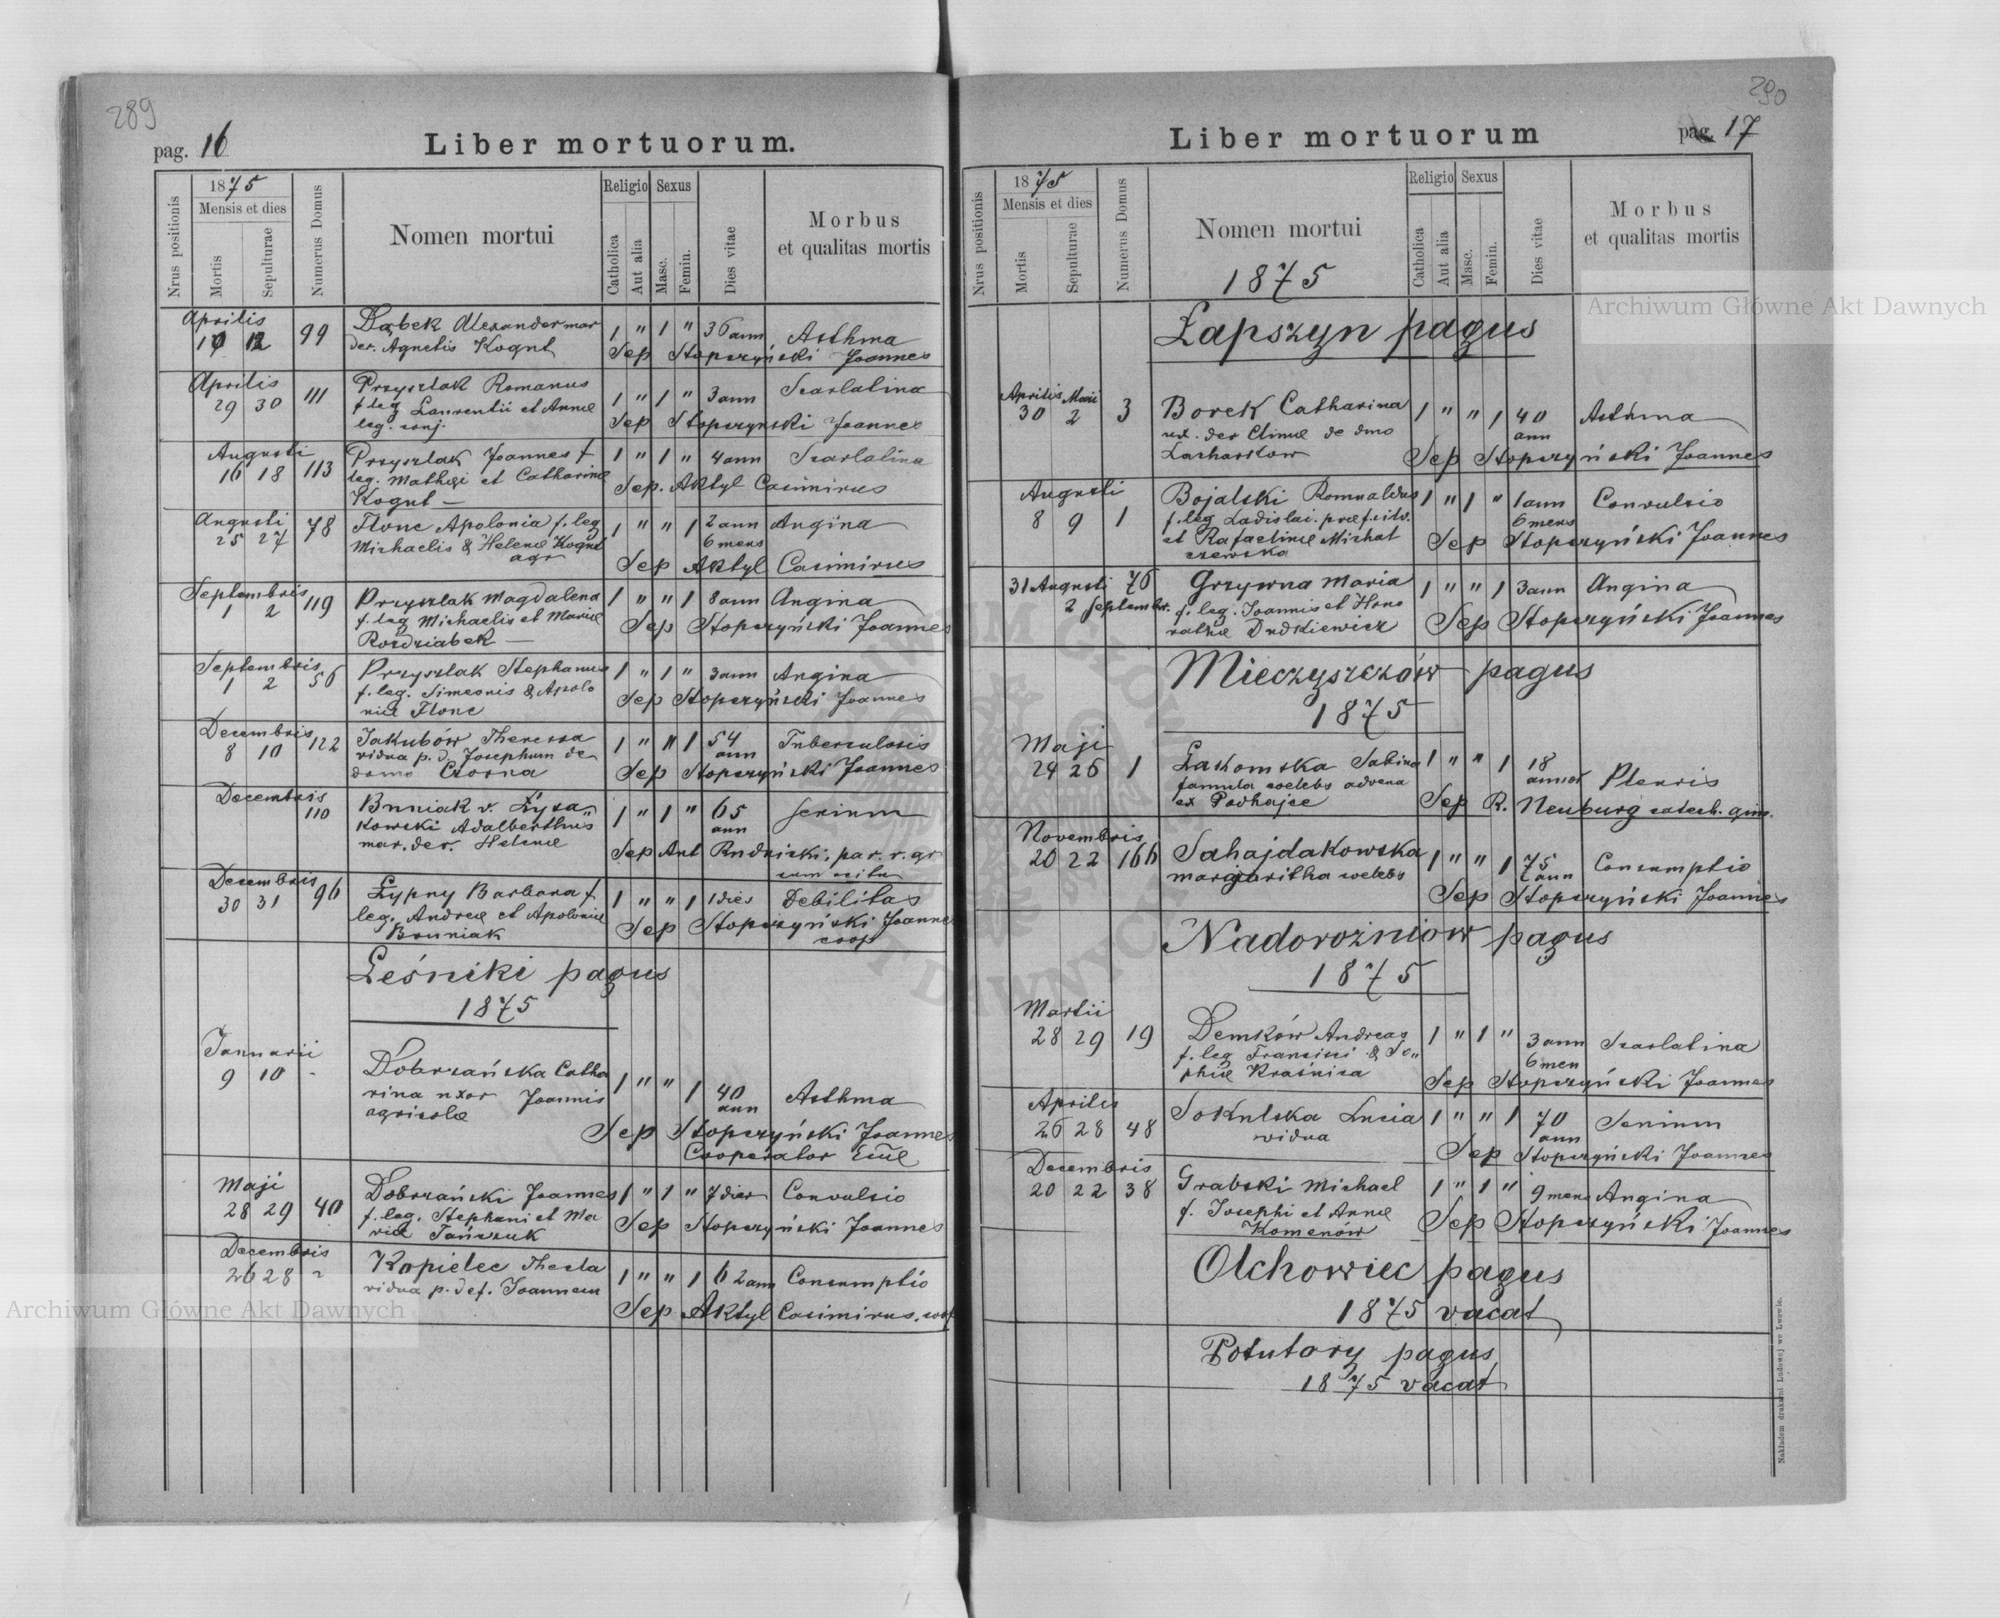 289
pag. 16
Liber mortuorum.
Nrus positionis
1875
Mensis et dies
Mortis
Sepulturae
Numerus Domus
Nomen mortui
Religio
Catholica
Aut alia
Sexus
Masc.
Femin.
Dies vitae
Morbus
et qualitas mortis
Aprilis
12
99
Dąbek Alexander mar
der. Agnetis Kogut
1 " 1 " 36 ann Asthma
Sep Stopczyński Joannes
Aprilis
29 30 111
Przyszlak Romanus
f leg Laurentii et Annae
leg. conj.
1 " 1 " 3 ann Scarlatina
Sep Stopczynski Joannes
Augusti
16 18 113
Przyszlak Joannes f
leg. Mathei et Catharinae
Kogut —
1 " 1 " 4 ann Scarlatina
Sep. Aktyl Casimirus
Augusti
25 27 78
Flonc Apolonia f. leg
Michaelis & Helenae Kogut
agr
1 " " 1 2 ann Angina
6 mens
Sep Aktyl Casimirus
Septembris
1 2 119
Przyszlak Magdalena
f. leg Michaelis et Mariae
Rozdziabek —
1 " " 1 8 ann Angina
Sep Stopczyński Joannes
Septembris
1 2 56
Przyszlak Stephanus
f. leg. Simeonis & Apolo
niae Flonc
1 " 1 " 3 ann Angina
Sep Stopczyński Joannes
Decembris
8 10 122
Jakubów Theressa
vidua p. d. Josephum de
domo Czorna
1 " " 1 54
ann
Tuberculosis
Sep Stopczyński Joannes
Decembris
110
Bruniak v. Łysa
kowski Adalberthus
mar. der. Helenae
1 " 1 " 65
ann
Senium
Sep Ant Rudnicki, par. r. gr
cum
Decembris
30 31 96
Łypny Barbara f.
leg. Andreae et Apoloniae
Bruniak
1 " " 1 1 dies Debilitas
Sep Stopczyński Joannes
coop
Leśniki pagus
1875
Januarii
9 10 -
Dobrzańska Catha
rina uxor Joannis
agricolae
1 " " 1 40
ann
Asthma
Sep Stopczyński Joannes
Cooperator
Maji
28 29 40
Dobrzański Joannes
f. leg. Stephani et Ma
riae Tańczuk
1 " 1 " 7 dier Convulsio
Sep Stopczyński Joannes
Decembris
26 28
Kopielec Thecla
vidua p. def. Joannem
1 " " 1 62 ann Consumptio
Sep Aktyl Casimirus, coop
290
Liber mortuorum
pag. 17
Nrus positionis
1875
Mensis et dies
Mortis
Sepulturae
Numerus Domus
Nomen mortui
1875
Religio
Catholica
Aut alia
Sexus
Masc.
Femin.
Dies vitae
Morbus
et qualitas mortis
Łapszyn pagus
Aprilis Maii
30 2 3
Borek Catharina
ux. der de dmo
1 " " 1 40
ann
Asthma
Sep Stopczyński Joannes
Augusti
8 9 1
Bojalski Romualdus
f. leg Ladislai.
et Rafaelinae Michal
czewska
1 " 1 " 1 ann
6 mens
Convulsio
Sep Stopczyński Joannes
31 Augusti 76
2 Septembr.
Grzywna Maria
f. leg. Joannis et Hono
rathae Dudkiewicz
1 " " 1 3 ann Angina
Sep Stopczyński Joannes
Mieczyszczów pagus
1875
Maji
24 26 1
Łakomska Sabina
famula caelebs advena
ex Podhajce
1 " " 1 18
annor
Pleuris
Sep R. Neuburg catech. gim.
Novembris
20 22 166
Sahajdakowska
margaritha caelebs
1 " " 1 75
ann
Consumptio
Sep Stopczyński Joannes
Nadorożniow pagus
1875
Martii
28 29 19
Demków Andreas
f. leg Francisci & So"
phiae Kraśnica
1 " 1 " 3 ann
6 men
Scarlatina
Sep Stopczyński Joannes
Aprilis
26 28 48
Sokulska Lucia
vidua
1 " " 1 70
ann
Senium
Sep Stopczyński Joannes
Decembris
20 22 38
Grabski Michael
f. Josephi et Annae
Komenów
1 " 1 " 9 mens Angina
Sep Stopczyński Joannes
Olchowiec pagus
1875 vacat
Potutory pagus
1875 vacat
Nakładem drukarni Ludowej we Lwowie.
Archiwum Główne Akt Dawnych
Archiwum Główne Akt Dawnych